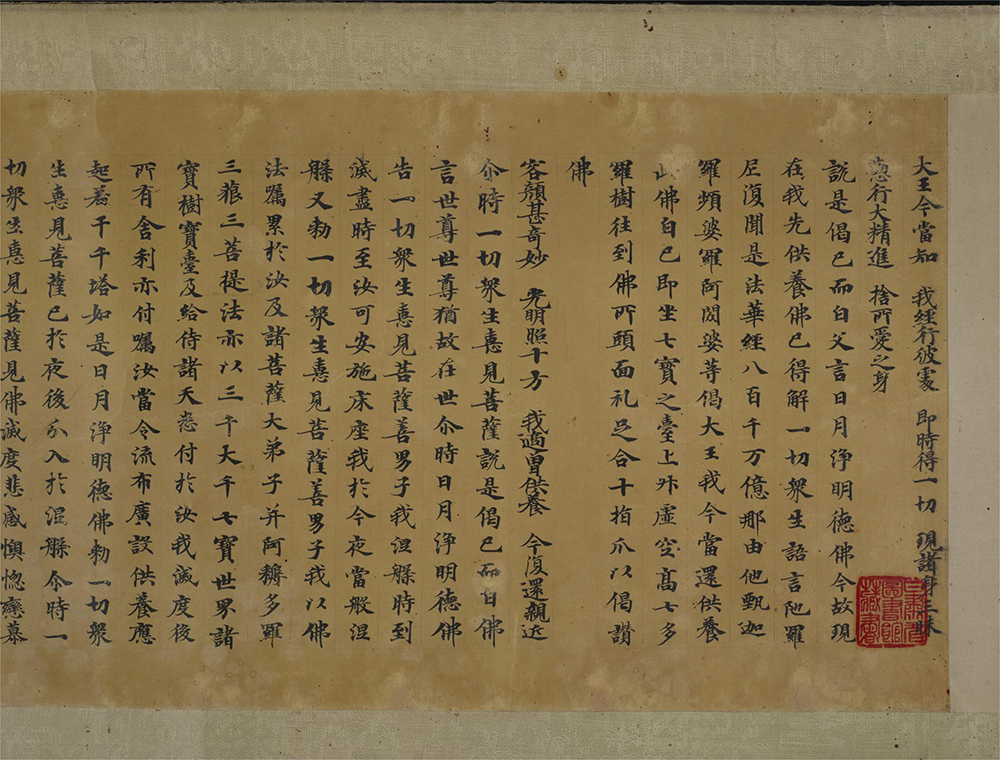 大王今當知　我經行彼處　即時得一切　現諸身三昧
懃行大精進　捨所愛之身
說是偈已而白父言日月淨明德佛今故現
在我先供養佛已得解一切衆生語言陁羅
尼復聞是法華經八百千万億那由他甄迦
羅頻婆羅阿閦婆等偈大王我今當還供養
此佛白已即坐七寶之臺上昇虛空高七多
羅樹往到佛所頭面礼足合十指爪以偈讃
佛
容顏甚奇妙　光明照十方　我適曾供養　今復還親近
尒時一切衆生憙見菩薩說是偈已而白佛
言世尊世尊猶故在世尒時日月淨明德佛
告一切衆生憙見菩薩善男子我涅槃時到
滅盡時至汝可安施床座我於今夜當般涅
槃又勑一切衆生憙見菩薩善男子我以佛
法囑累於汝及諸菩薩大弟子并阿耨多羅
三藐三菩提法亦以三千大千七寶世界諸
寶樹寶臺及給侍諸天悉付於汝我滅度後
所有舍利亦付囑汝當令流布廣設供養應
起若干千塔如是日月淨明德佛勑一切衆
生憙見菩薩已於夜後分入於涅槃尒時一
切衆生憙見菩薩見佛滅度悲感懊惱戀慕